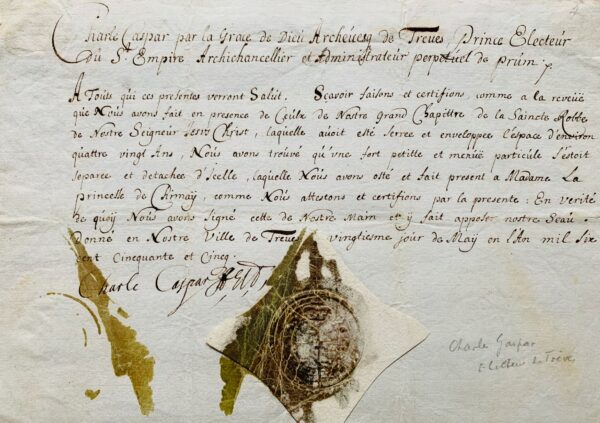 Charle Caspar par la Grace de Dieu Archevesq de Treves, Prince Electeur
du St Empire Archichancellier et Administrateur perpetuel de prum.
A Touts qui ces presentes verront Salut. Sçavoir faisons et certifions comme a la reveüe
que Nous avons fait en presence de Ceulx de Nostre Grand Chapittre de la Saincte Robbe
de Nostre Seigneur Jesus Christ, laquelle avoit esté serree et enveloppee l'espace d'environ
quattre vingt Ans, Nous avons trouvé qu'vne fort petitte et menüe particule s'estoit
separee et detachee d'Icelle, laquelle Nous avons osté et fait present a Madame La
princesse de Chimay, comme Nous attestons et certifions par la presente: En verité
de quoy Nous avons signé cette de Nostre Main et y fait apposer nostre Seau.
Donné en Nostre Ville de Treves vingtiesme jour de May en l'An mil six
cent Cincquante et Cincq.
Charle Caspar
Charle Gaspar
Electeur de Trève